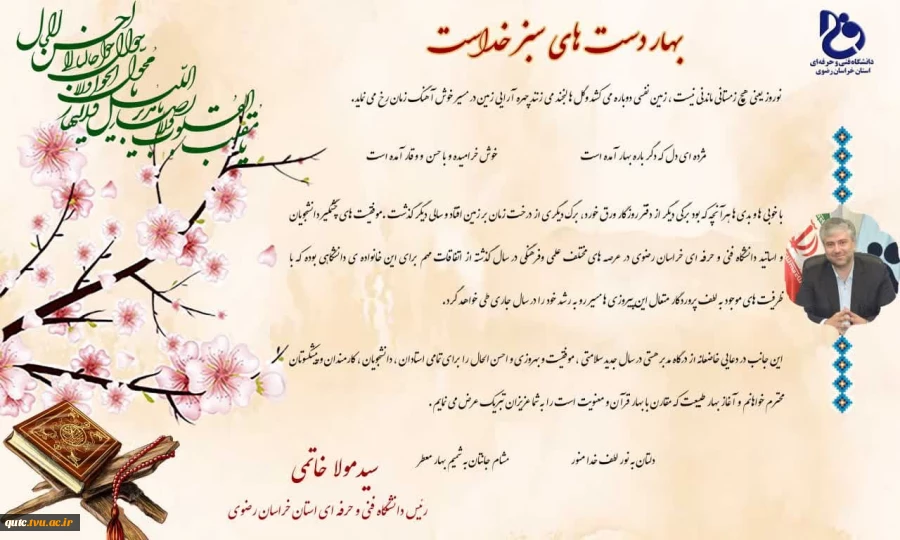 بهار دست های سبز خداست
دانشگاه فنی و حرفه ای
استان خراسان رضوی
نوروز یعنی هیچ زمستانی ماندنی نیست ، زمین نفسی دوباره می کشد و گل ها لبخند می زنند چهره آرایی زمین در مسیر خوش آهنگ زمان رخ می نماید.
مژده ای دل که دگر باره بهار آمده است خوش خرامیده و با حسن و وقار آمده است
با خوبی ها و بدی ها هر آنچه که بود برگی دیگر از دفتر روزگار ورق خورد، برگ دیگری از درخت زمان بر زمین افتاد و سالی دیگر گذشت .موفقیت های چشمگیر دانشجویان
و اساتید دانشگاه فنی و حرفه ای خراسان رضوی در عرصه های مختلف علمی وفرهنگی در سال گذشته از اتفاقات مهم برای این خانواده ی دانشگاهی بوده که با
ظرفیت های موجود به لطف پروردگار متعال این پیروزی ها مسیر رو به رشد خود را در سال جاری طی خواهد کرد.
این جانب در دعایی خاضعانه از درگاه مدبر هستی در سال جدید سلامتی ، موفقیت و بهروزی و احسن الحال را برای تمامی استادان ، دانشجویان ، کارمندان و پیشکسوتان
محترم خواهانم و آغاز بهار طبیعت که مقارن با بهار قرآن و معنویت است را به شما عزیزان تبریک عرض می نمایم.
دلتان به نور لطف خدا منور مشام جانتان به شمیم بهار معطر
سید مولا خاتمی
رئیس دانشگاه فنی و حرفه ای استان خراسان رضوی
qutc.tvu.ac.ir